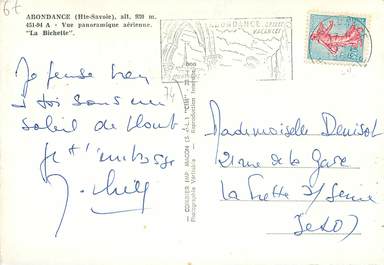 6t
ABONDANCE (Hte-Savoie), alt. 930 m.
451-94 A - Vue panoramique aérienne.
"La Bichette".
ABONDANCE
VACANCES
Je pense
à toi sous un
soleil de plomb
Je t'embrasse
74
COMBIER IMP. MACON (S.-&-L.) "CIM"
Photographie Véritable - Reproduction Interdite
Mademoiselle Denisot
21 rue de la Gare
La Frette s/Seine